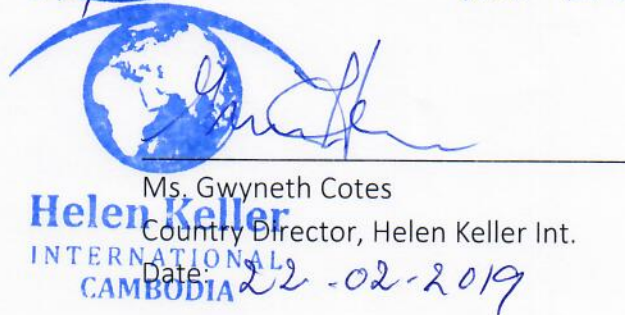 Ms. Gwyneth Cotes
Country Director, Helen Keller Int.
Date: 22-02-2019
Helen Keller
INTERNATIONAL
CAMBODIA